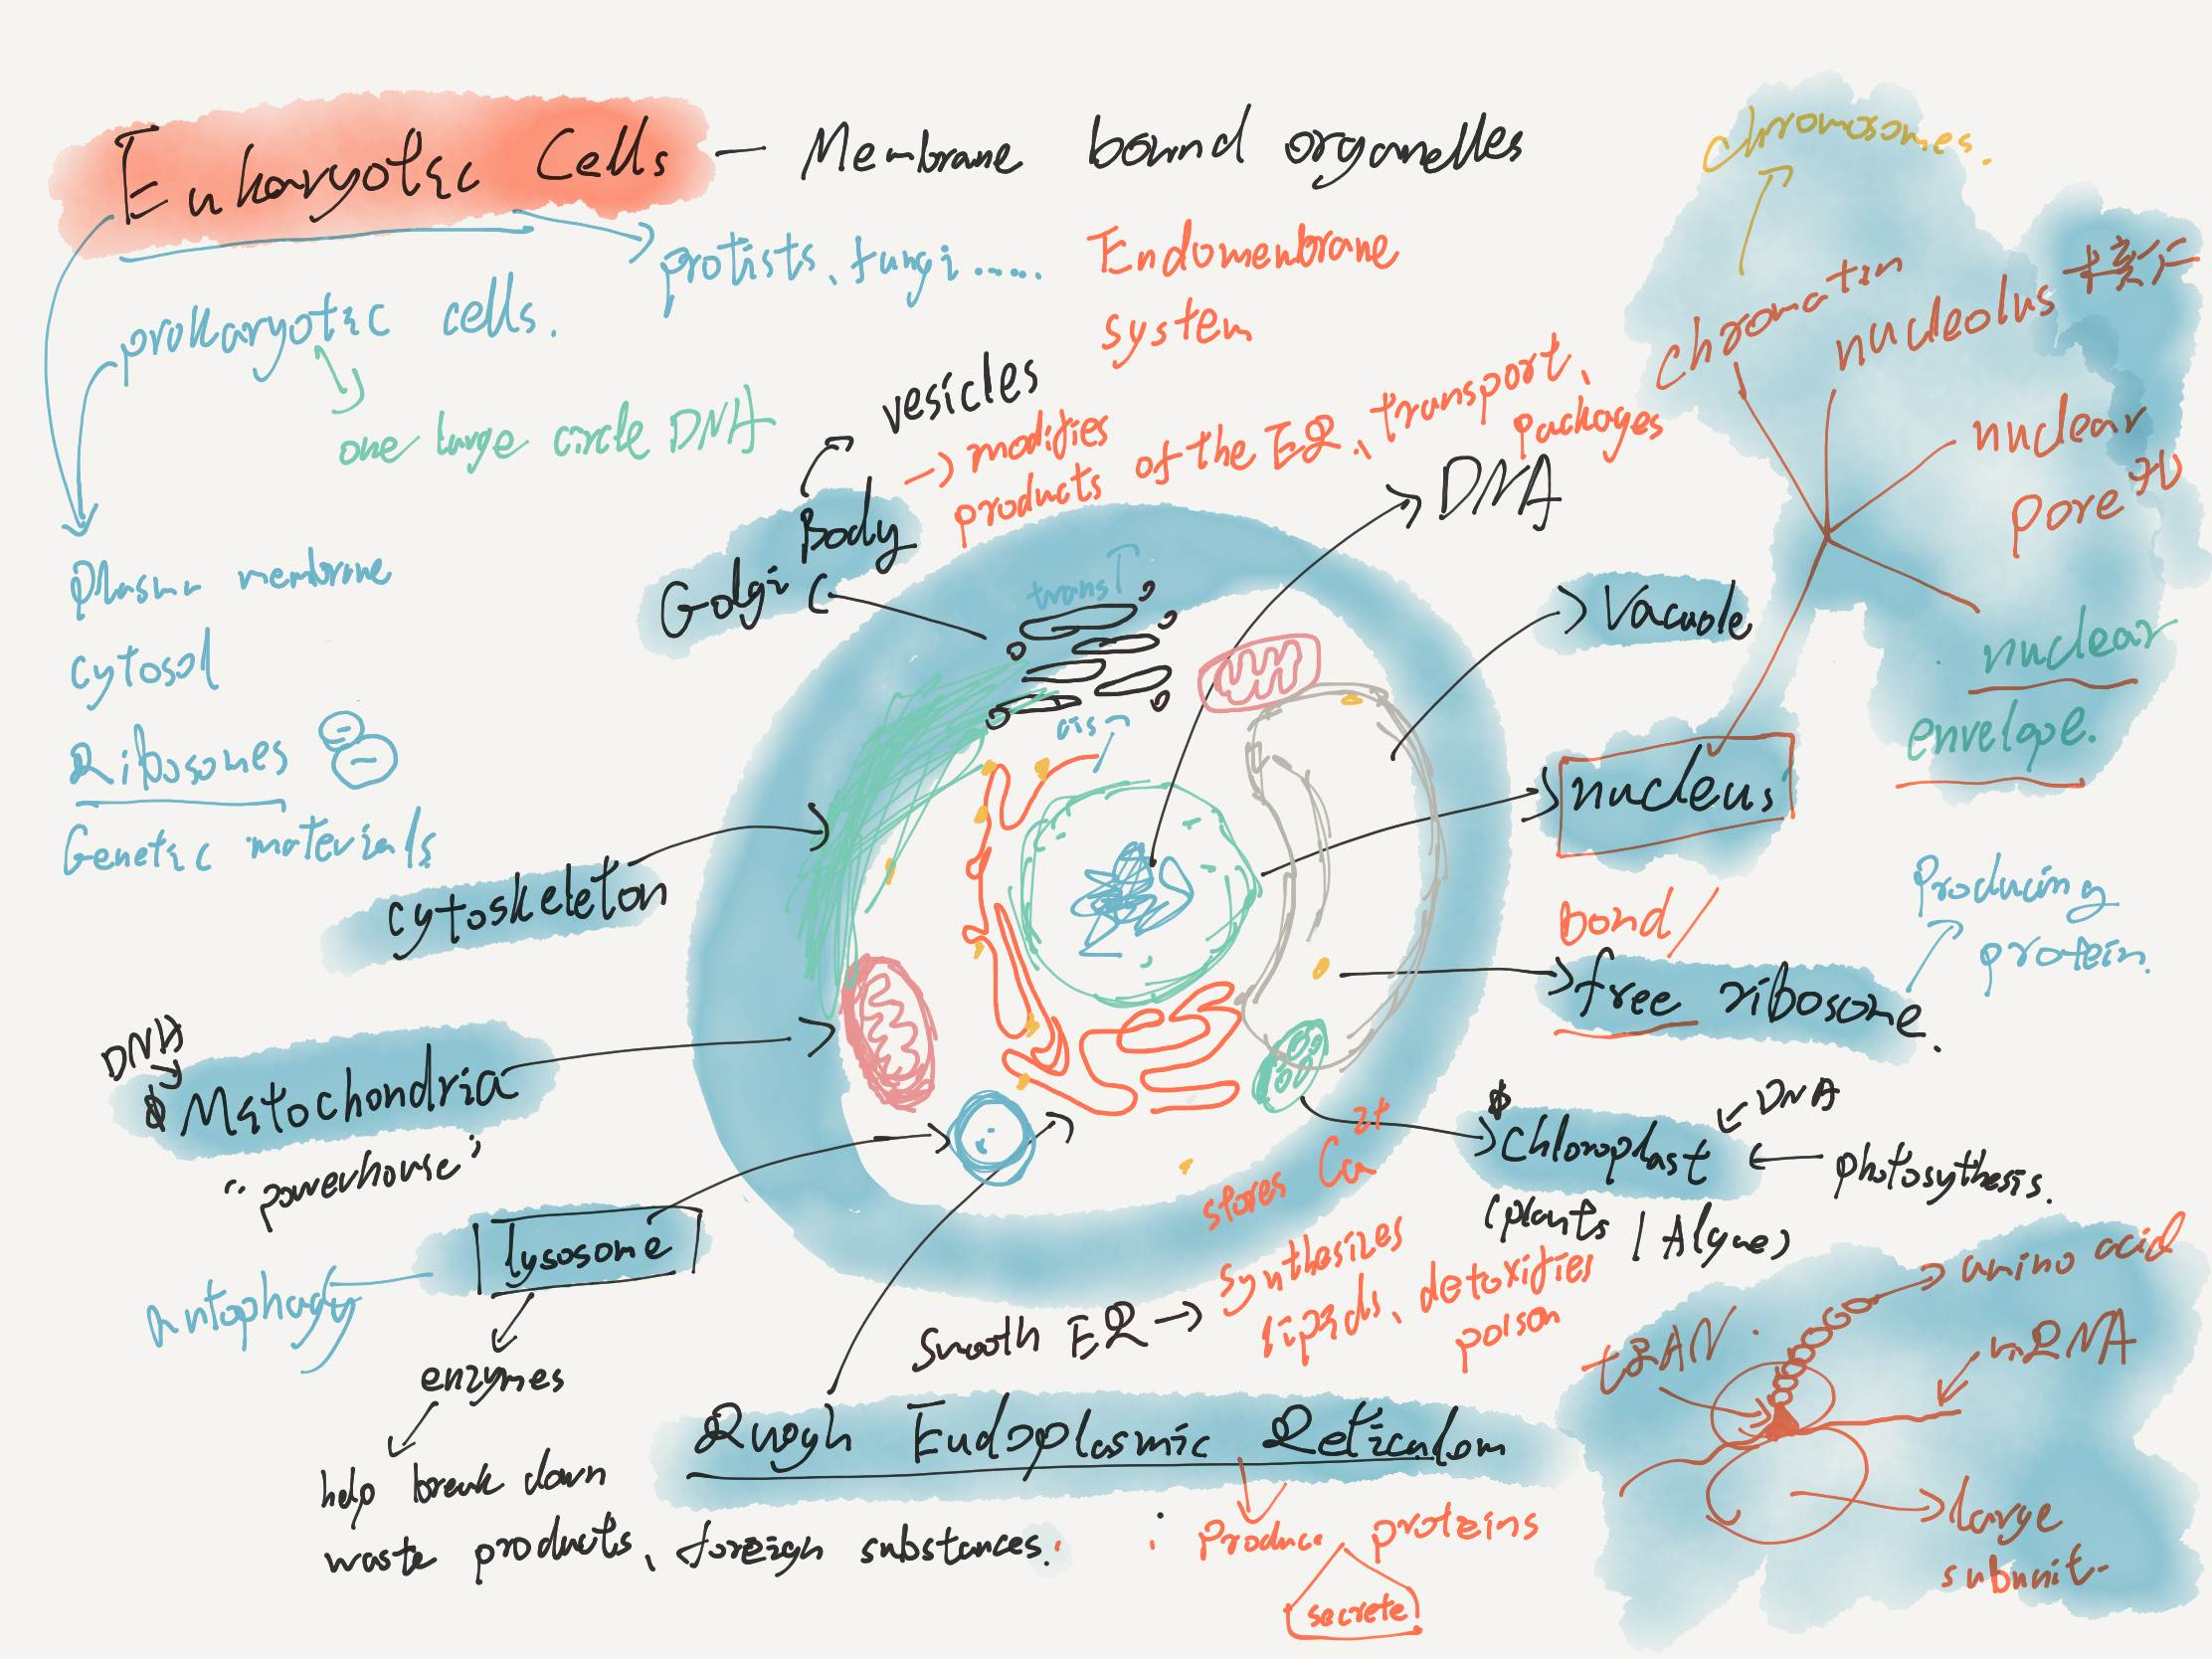 Eukaryotic Cells — Membrane bound organelles
protists、fungi......
prokaryotic cells.
one large circle DNA
Endomembrane
system
plasma membrane
cytosol
Ribosomes
Genetic materials
vesicles
modifies
products of the ER、transport、
packages
Golgi Body
trans
cis
DNA
Vacuole
chromosomes.
chromatin
nucleolus 核仁
nuclear
pore 孔
nuclear
envelope.
nucleus
bond /
free ribosome.
Producing
protein.
cytoskeleton
DNA
Mitochondria
"powerhouse"
lysosome
Autophagy
enzymes
help break down
waste products、foreign substances.
DNA
Chloroplast
photosythesis.
(plants / Algae)
stores Ca2+
Smooth ER → synthesizes
lipids、detoxifies
poison
Ruogh Endoplasmic Reticulom
: Produce proteins
secrete
amino acid
tRAN.
mRNA
large
subunit